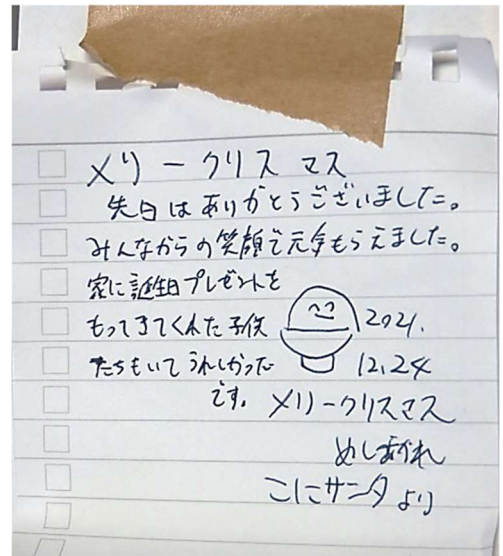 メリークリスマス
先日はありがとうございました。
みんなからの笑顔で元気もらえました。
家に誕生日プレゼントを
もってきてくれた子供
たちもいてうれしかった
です。
2021.
12.24
メリークリスマス
めしあがれ
こにサンタより